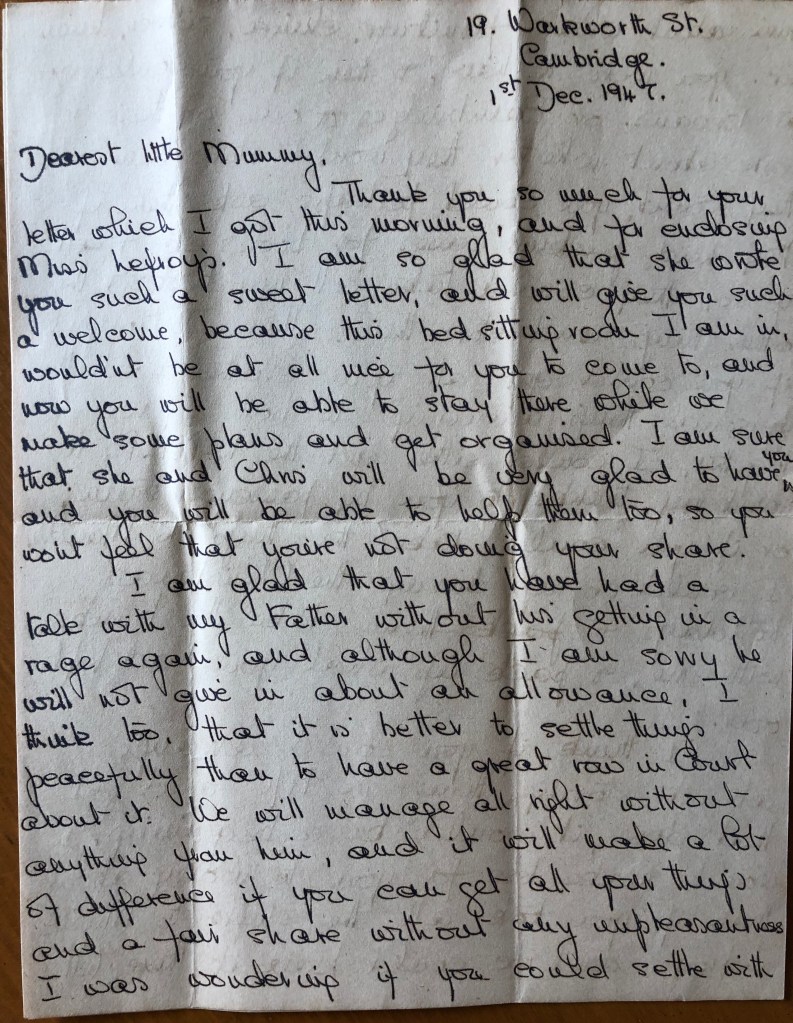 19. Warkworth St.
Cambridge.
1st Dec. 1947.
Dearest little Mummy,
Thank you so much for your
letter which I got this morning, and for enclosing
Miss Lefroy's. I am so glad that she wrote
you such a sweet letter, and will give you such
a welcome, because this bed sitting room I am in,
would'nt be at all nice for you to come to, and
now you will be able to stay there while we
make some plans and get organised. I am sure
that she and Chris will be very glad to have you,
and you will be able to help them too, so you
wont feel that you're not doing your share.
I am glad that you have had a
talk with my Father without his getting in a
rage again, and although I am sorry he
will not give in about an allowance, I
think too, that it is better to settle things
peacefully than to have a great row in Court
about it. We will manage all right without
anything from him, and it will make a lot
of difference if you can get all your things
and a fair share without any unpleasantness
I was wondering if you could settle with